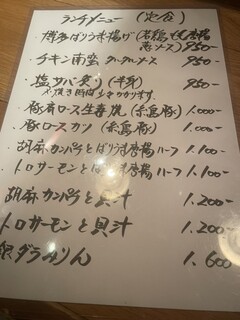 ランチメニュー (定食)
・博多ばりうま揚げ(若鶏唐揚
ソース) 950-
・チキン南蛮 タルタルソース 950-
・塩サバ焼き(半身) 950-
※焼き時間少々かかります
・豚肩ロース生姜焼(糸島豚) 1.000-
・豚ロースカツ(糸島豚) 1.000-
・胡麻カンパチとばりうま唐揚ハーフ 1.100-
・トロサーモンとばりうま唐揚ハーフ 1.100-
胡麻カンパチと貝汁 1.200-
トロサーモンと貝汁 1.200-
銀ダラみりん 1.600-